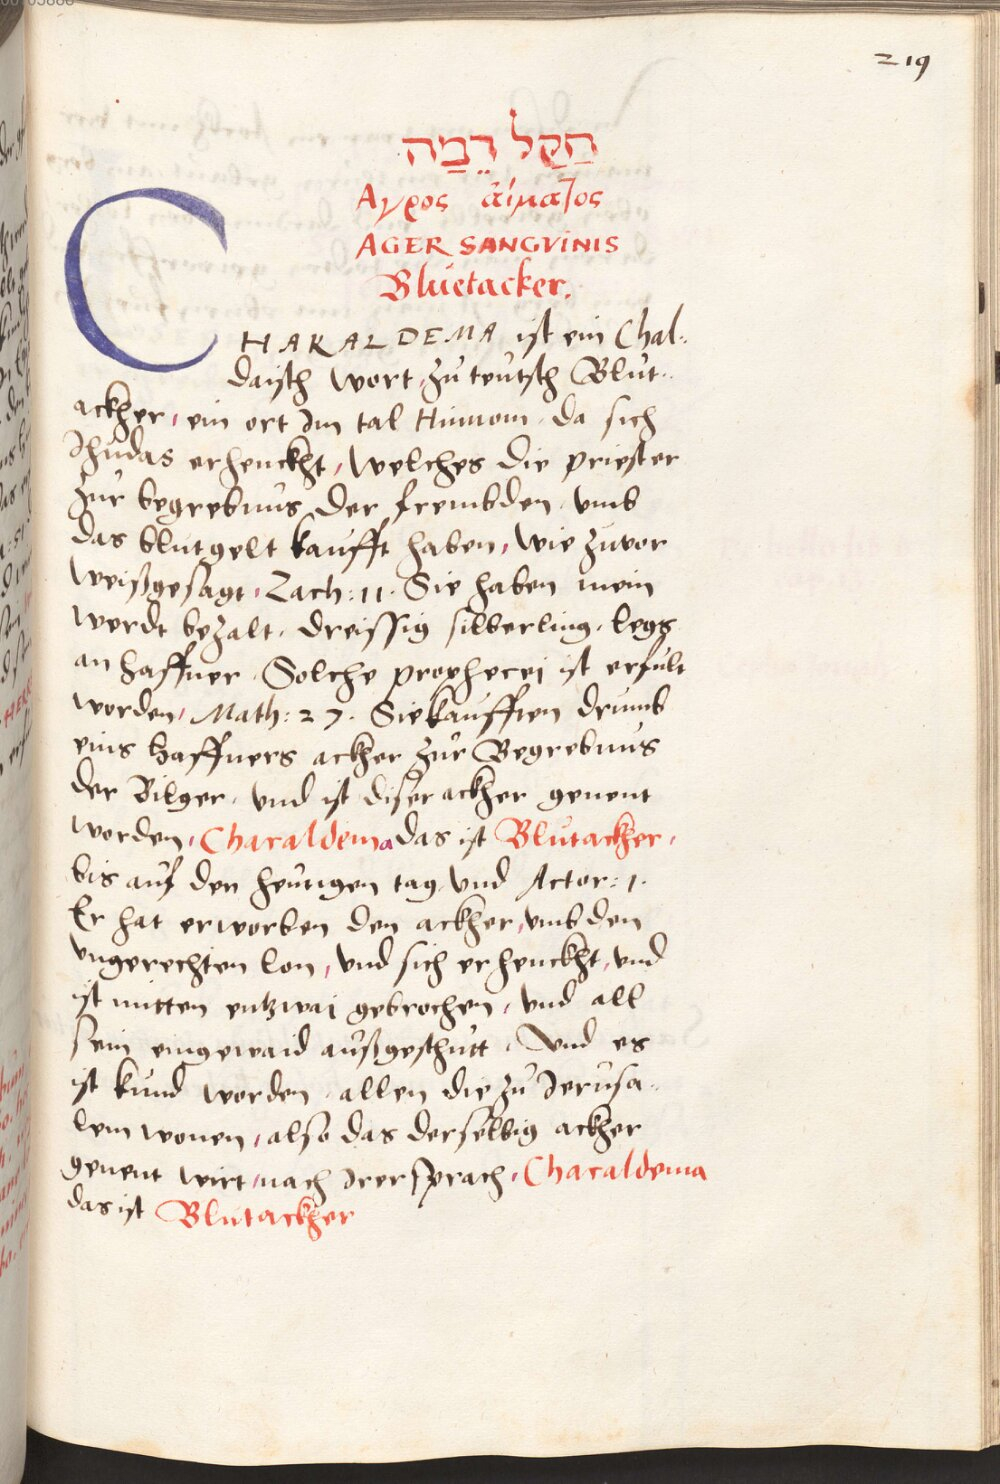 219
חַקַל דֵמַה
Αγρος ἁίματος
AGER SANGVINIS
Bluetacker.
CHARALDEMA ist ein Chal-
daisch wort, zu teutsch Blut-
ackher, ein ort Im tal Hinnom, da sich
Ihudas erhenckht, welches die priester
zur begrebnus der frembden, umb
das blutgelt kaufft haben, wie zuvor
weißgesagt, Zach: 11. Sie haben mein
werdt bezalt, dreissig silberling, legs
an haffner. Solche prophecej ist erfult
worden, Math: 27. Sie kaufften drumb
eins haffners ackher zur Begrebnus
der Bilger, und ist diser ackher genent
worden, Charaldema das ist Blutackher,
bis auf den heutigen tag, und Actor: 1.
Er hat erworben den ackher, umb den
ungerechten lon, und sich erhenckht, und
ist mitten entzwaj gebrochen, und all
sein eingewaid außgeschutt. Und es
ist kund worden, allen die zu Jerusa-
lem wonen, also das derselbig ackher
genent wirt, nach Irer sprach, Charaldema
das ist Blutackher